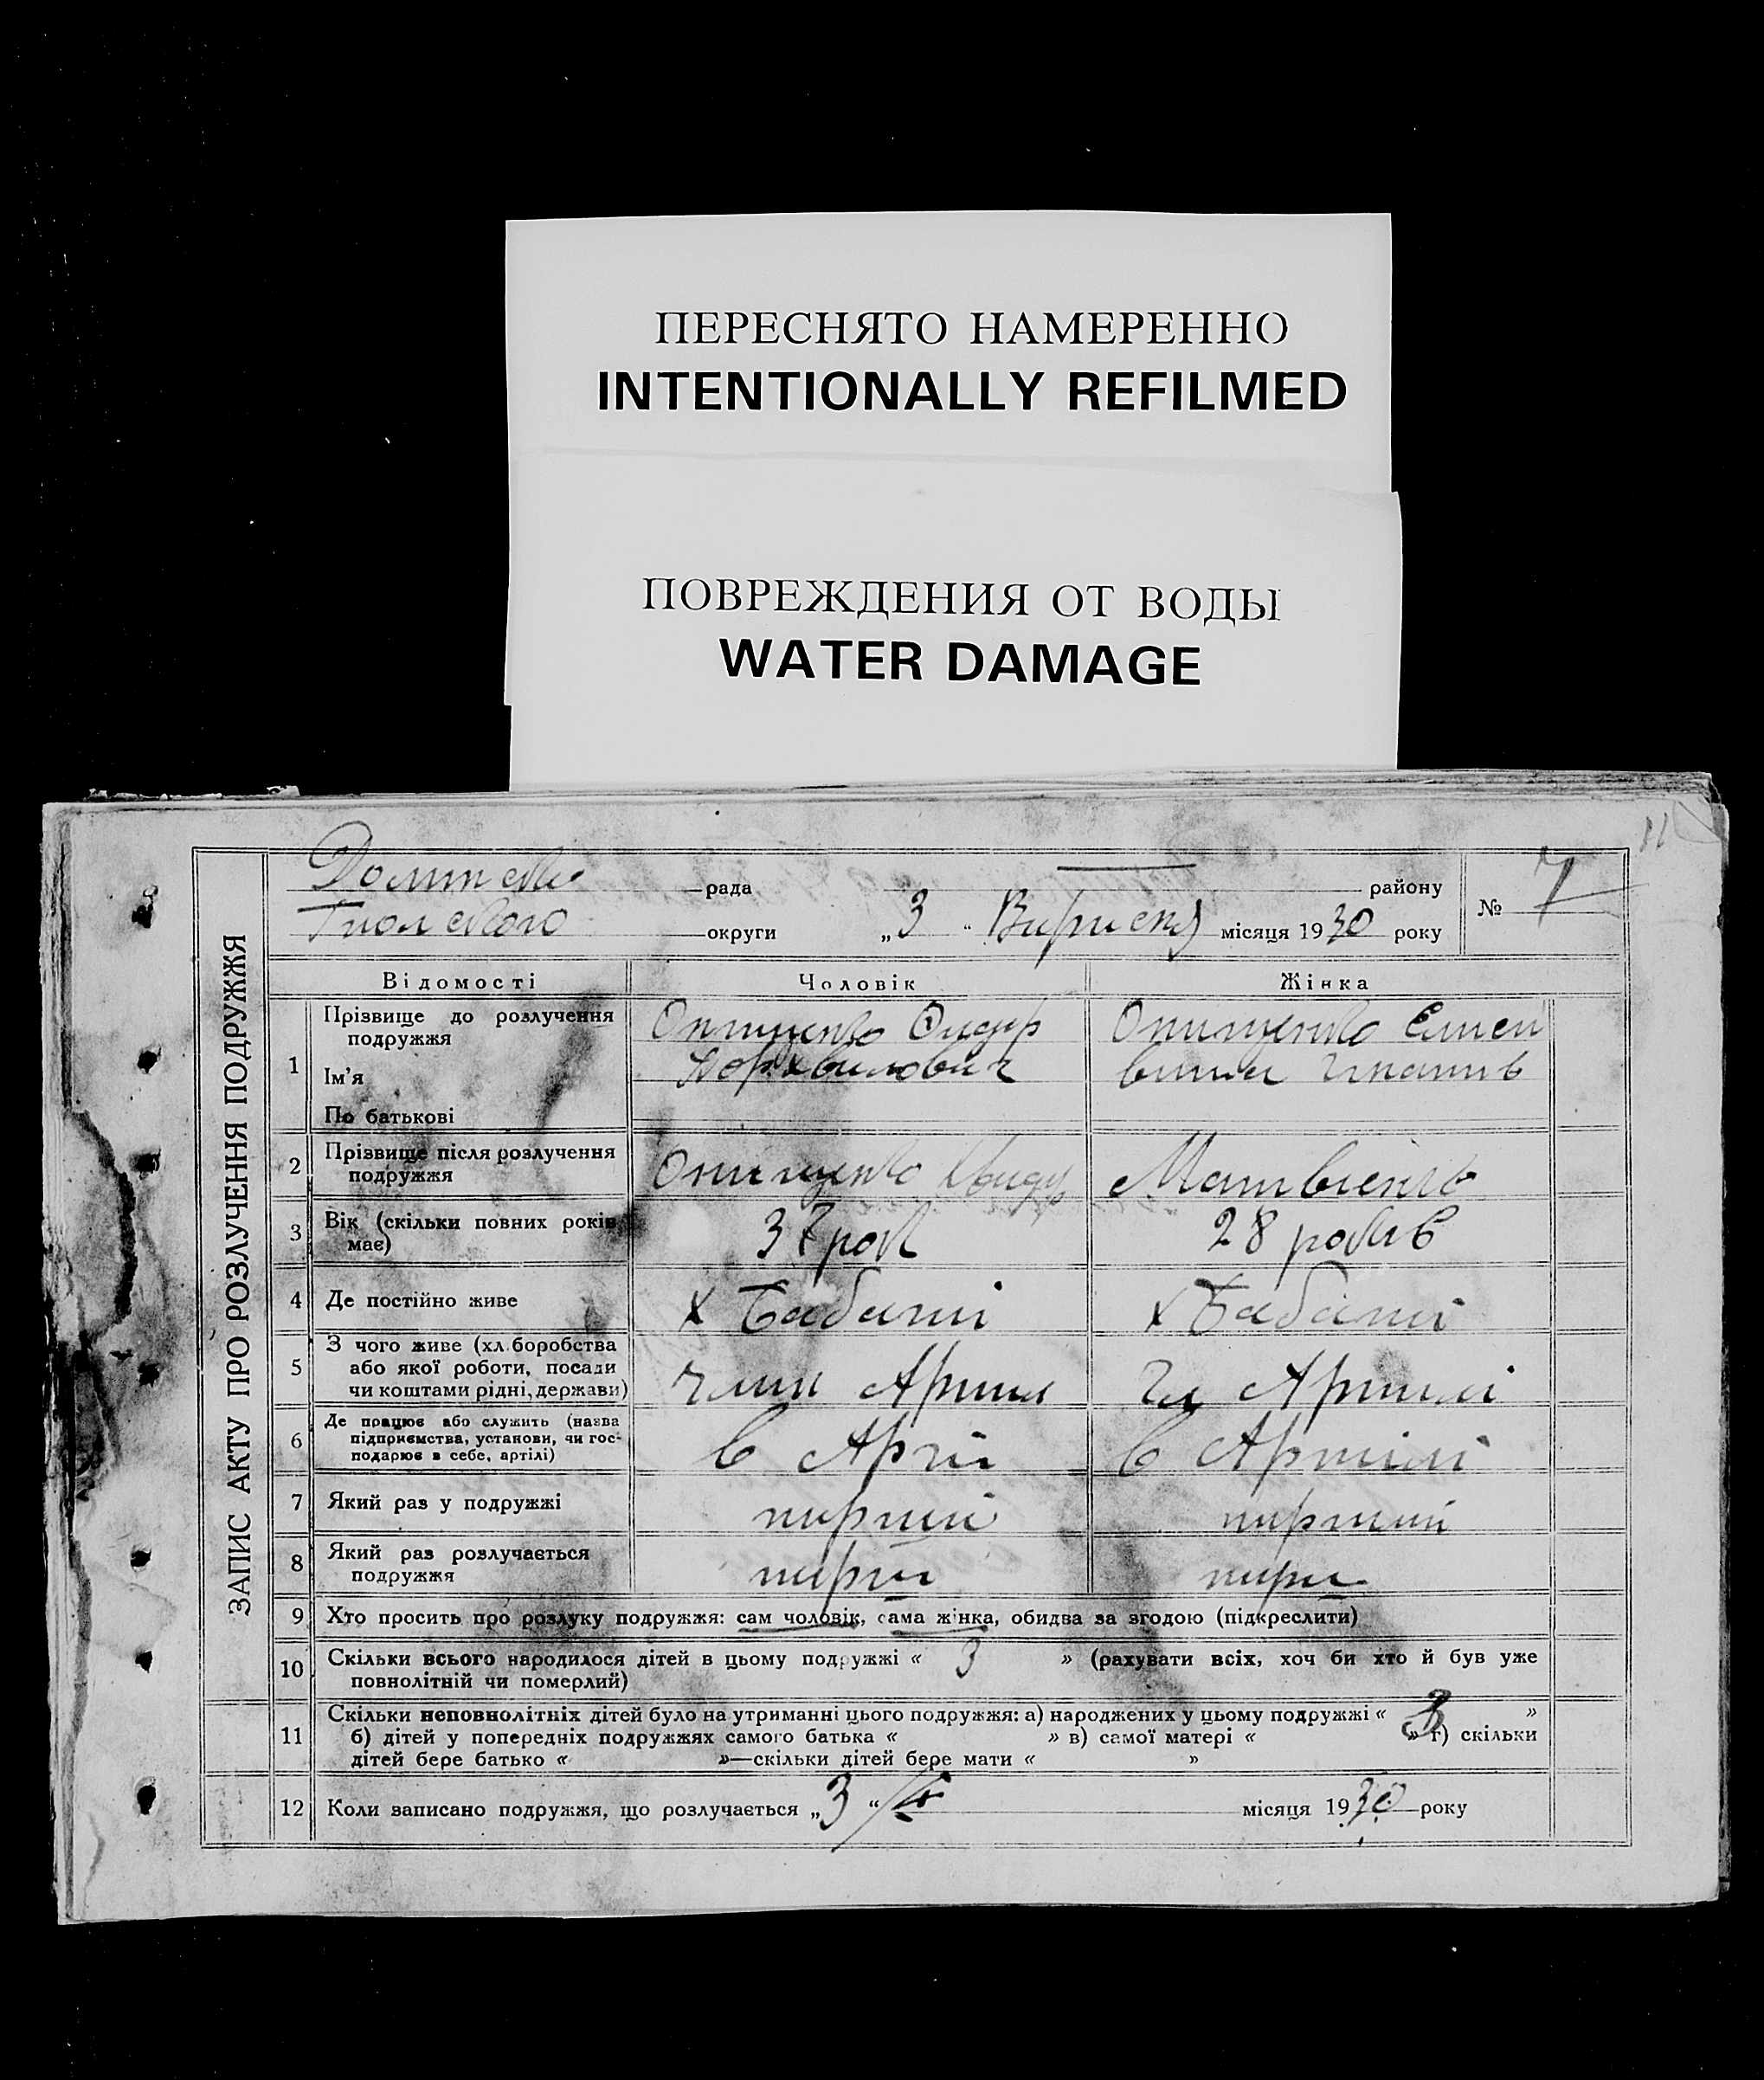 ПЕРЕСНЯТО НАМЕРЕННО
INTENTIONALLY REFILMED
ПОВРЕЖДЕНИЯ ОТ ВОДЫ
WATER DAMAGE
11
ЗАПИС АКТУ ПРО РОЗЛУЧЕННЯ ПОДРУЖЖЯ
рада району
округи „3“ місяця 1930 року № 7
Відомості Чоловік Жінка
1 Прізвище до розлучення подружжя Онищенко Онищенко
Ім'я
По батькові
2 Прізвище після розлучення Онищенко Матвіенко
подружжя
3 Вік (скільки повних років 37 рок 28 років
має)
4 Де постійно живе х Бабані х Бабані
5 З чого живе (хл.боробства
або якої роботи, посади член Артіл чл Артілі
чи коштами рідні, держави)
6 Де працює або служить (назва
підприємства, установи, чи гос- в Артіл в Артілі
подарює в себе, артілі)
7 Який раз у подружжі перший перший
8 Який раз розлучається
подружжя
9 Хто просить про розлуку подружжя: сам чоловік, сама жінка, обидва за згодою (підкреслити)
10 Скільки всього народилося дітей в цьому подружжі « 3 » (рахувати всіх, хоч би хто й був уже
повнолітній чи померлий)
11 Скільки неповнолітніх дітей було на утриманні цього подружжя: а) народжених у цьому подружжі « 3 »
б) дітей у попередніх подружжях самого батька « » в) самої матері « » г) скільки
дітей бере батько « »—скільки дітей бере мати « »
12 Коли записано подружжя, що розлучається „3“ місяця 1930 року